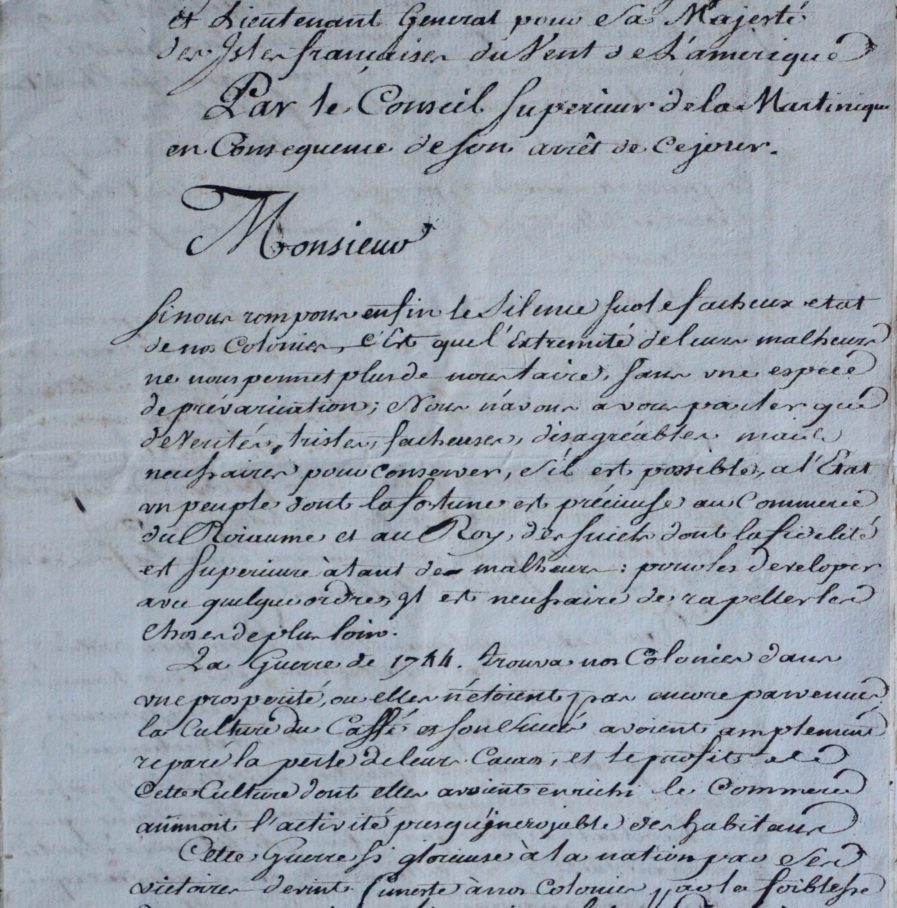 et Lieutenant General pour sa Majesté
des Isles françaises du Vent de L'amerique
Par le Conseil Superieur de la Martinique
en Consequence de son arrêt de Cejour.
Monsieur
Si nous rompons enfin le Silence sur le facheux etat
de nos Colonies, c'Est que l'Extremité de leurs malheurs
ne nous permet plus de nous taire, sans une espece
de prévarication; Nous n'avons a vous parler que
de Verités, tristes, facheuses, désagréables mais
necessaires pour conserver, s'il est possible, a l'Etat
un peuple dont la fortune est précieuse au Commerce
du Roiaume et au Roy, des sujets dont la fidelité
est Superieure à tant de malheurs: pour les developer
avec quelque ordre, il est necessaire de rapeller les
choses de plus loin.
La Guerre de 1744. trouva nos Colonies dans
une prosperité, ou elles n'étoient pas encore parvenues
la Culture du Caffé et son Succés avoient amplement
reparé la perte de leurs Cacaos, et le profit de
Cette Culture dont elles avoient enrichi le Commerce
animoit l'activité presqu'incroiable des habitans
Cette Guerre Si glorieuse à la nation par Ses
victoires devint funeste à nos Colonies par la foiblesse